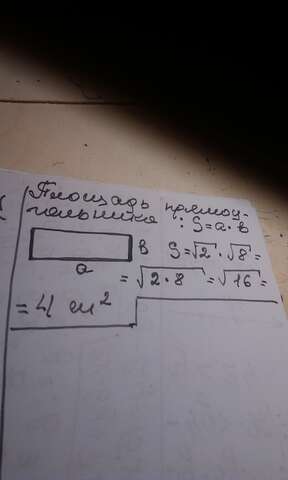 Площадь прямоу-
гольника : S=a·в
в S=√2 · √8 =
a
= √2·8 = √16 =
= 4 см²